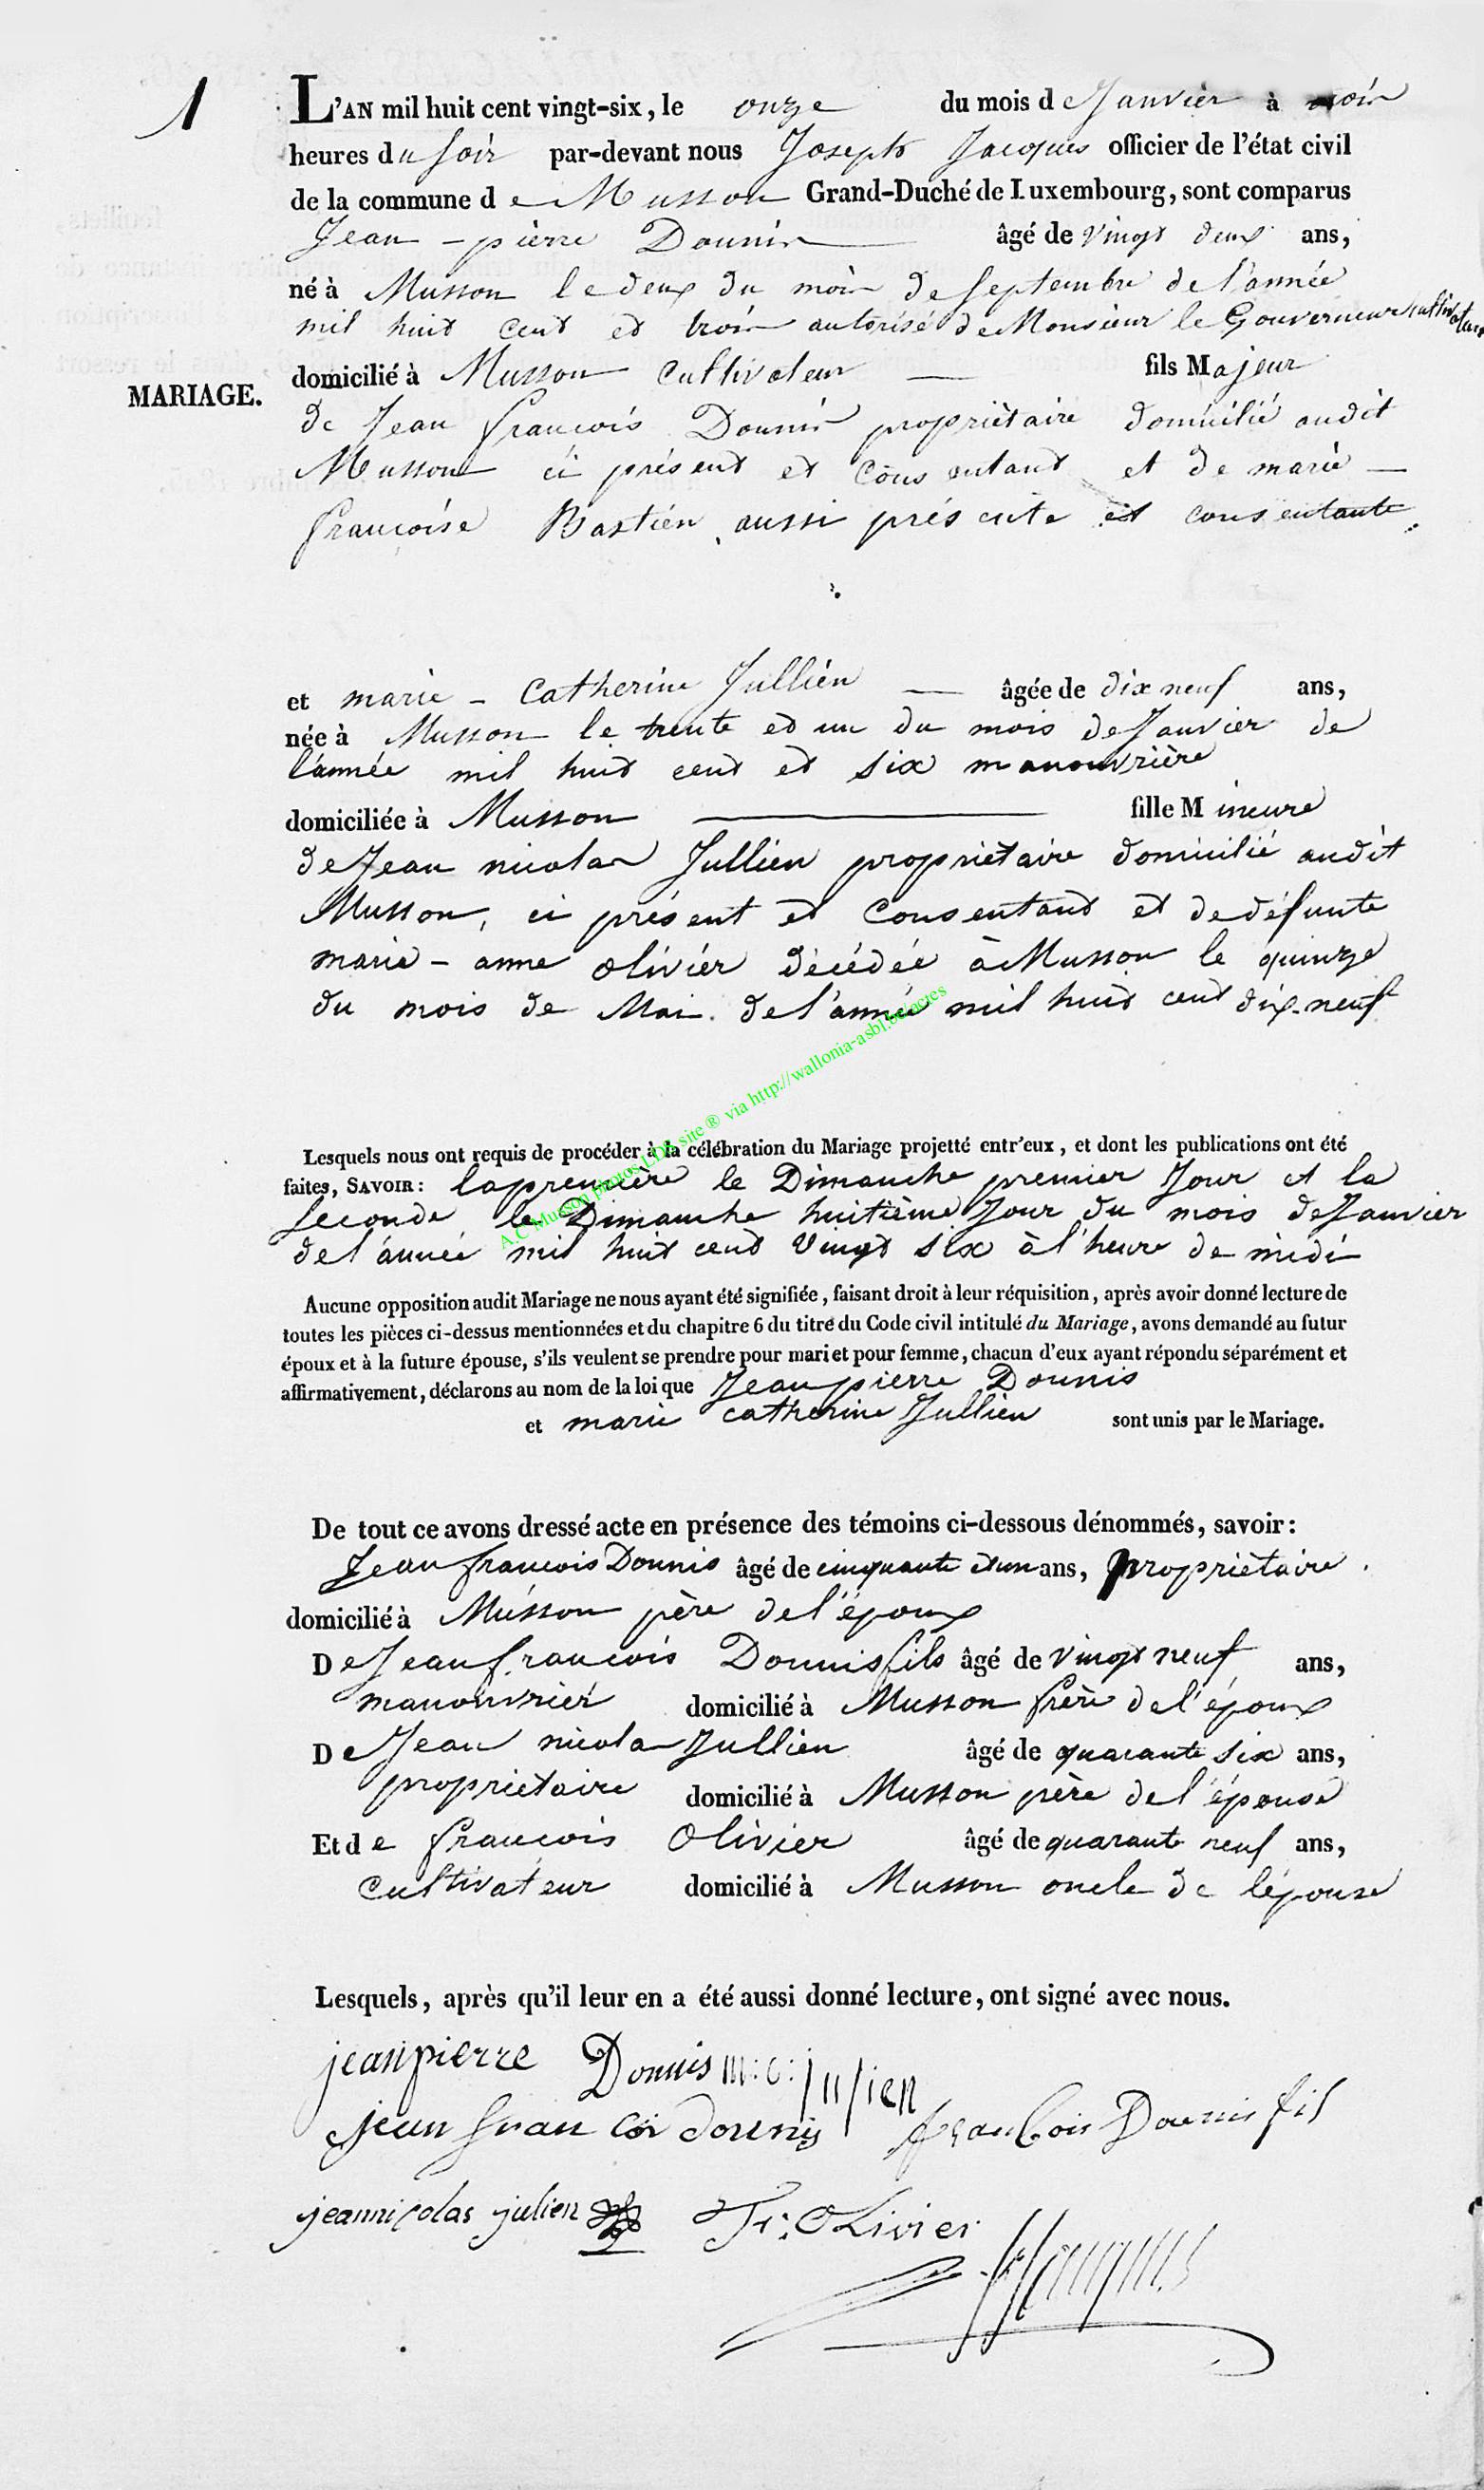 1
L'AN mil huit cent vingt-six, le onze du mois de Janvier à trois
heures du soir par-devant nous Joseph Jacques officier de l'état civil
de la commune de Musson Grand-Duché de Luxembourg, sont comparus
Jean-pierre Dounis âgé de vingt deux ans,
né à Musson le deux du mois de Septembre de l'année
mil huit cent et trois autorisé de Monsieur le Gouverneur cultivateur
MARIAGE.
domicilié à Musson Cultivateur fils Majeur
de Jean françois Dounis propriètaire domicilié audit
Musson ci présent et consentant et de marie
françoise Bastien aussi présente et consentante
et marie-Catherine Jullien âgée de dix neuf ans,
née à Musson le trente et un du mois de Janvier de
l'année mil huit cent et six manouvrière
domiciliée à Musson fille Mineure
de Jean nicolas Jullien propriètaire domicilié audit
Musson, ci présent et consentant et de défunte
marie-anne olivier décédée à Musson le quinze
du mois de Mai de l'année mil huit cent dix-neuf
A.C Musson photos LDB site ® via http://wallonia-asbl.be/actes
Lesquels nous ont requis de procéder à la célébration du Mariage projetté entr'eux, et dont les publications ont été
faites, SAVOIR: la première le Dimanche premier Jour et la
Seconde le Dimanche huitième Jour du mois de Janvier
de l'année mil huit cent vingt six à l'heure de midi
Aucune opposition audit Mariage ne nous ayant été signifiée, faisant droit à leur réquisition, après avoir donné lecture de
toutes les pièces ci-dessus mentionnées et du chapitre 6 du titre du Code civil intitulé du Mariage, avons demandé au futur
époux et à la future épouse, s'ils veulent se prendre pour mari et pour femme, chacun d'eux ayant répondu séparément et
affirmativement, déclarons au nom de la loi que Jean pierre Dounis
et marie catherine Jullien sont unis par le Mariage.
De tout ce avons dressé acte en présence des témoins ci-dessous dénommés, savoir:
Jean françois Dounis âgé de cinquante et un ans, propriètaire
domicilié à Musson père de l'époux
De Jean françois Dounis fils âgé de vingt neuf ans,
manouvrier domicilié à Musson frère de l'époux
De Jean nicolas Jullien âgé de quarante six ans,
propriètaire domicilié à Musson père de l'épouse
Et de françois Olivier âgé de quarante neuf ans,
cultivateur domicilié à Musson oncle de l'épouse
Lesquels, après qu'il leur en a été aussi donné lecture, ont signé avec nous.
jeanpierre Dounis m: c: jullien
jean francoi dounis francois Dounis fils
jeannicolas julien Fr: OLivier
Jacques